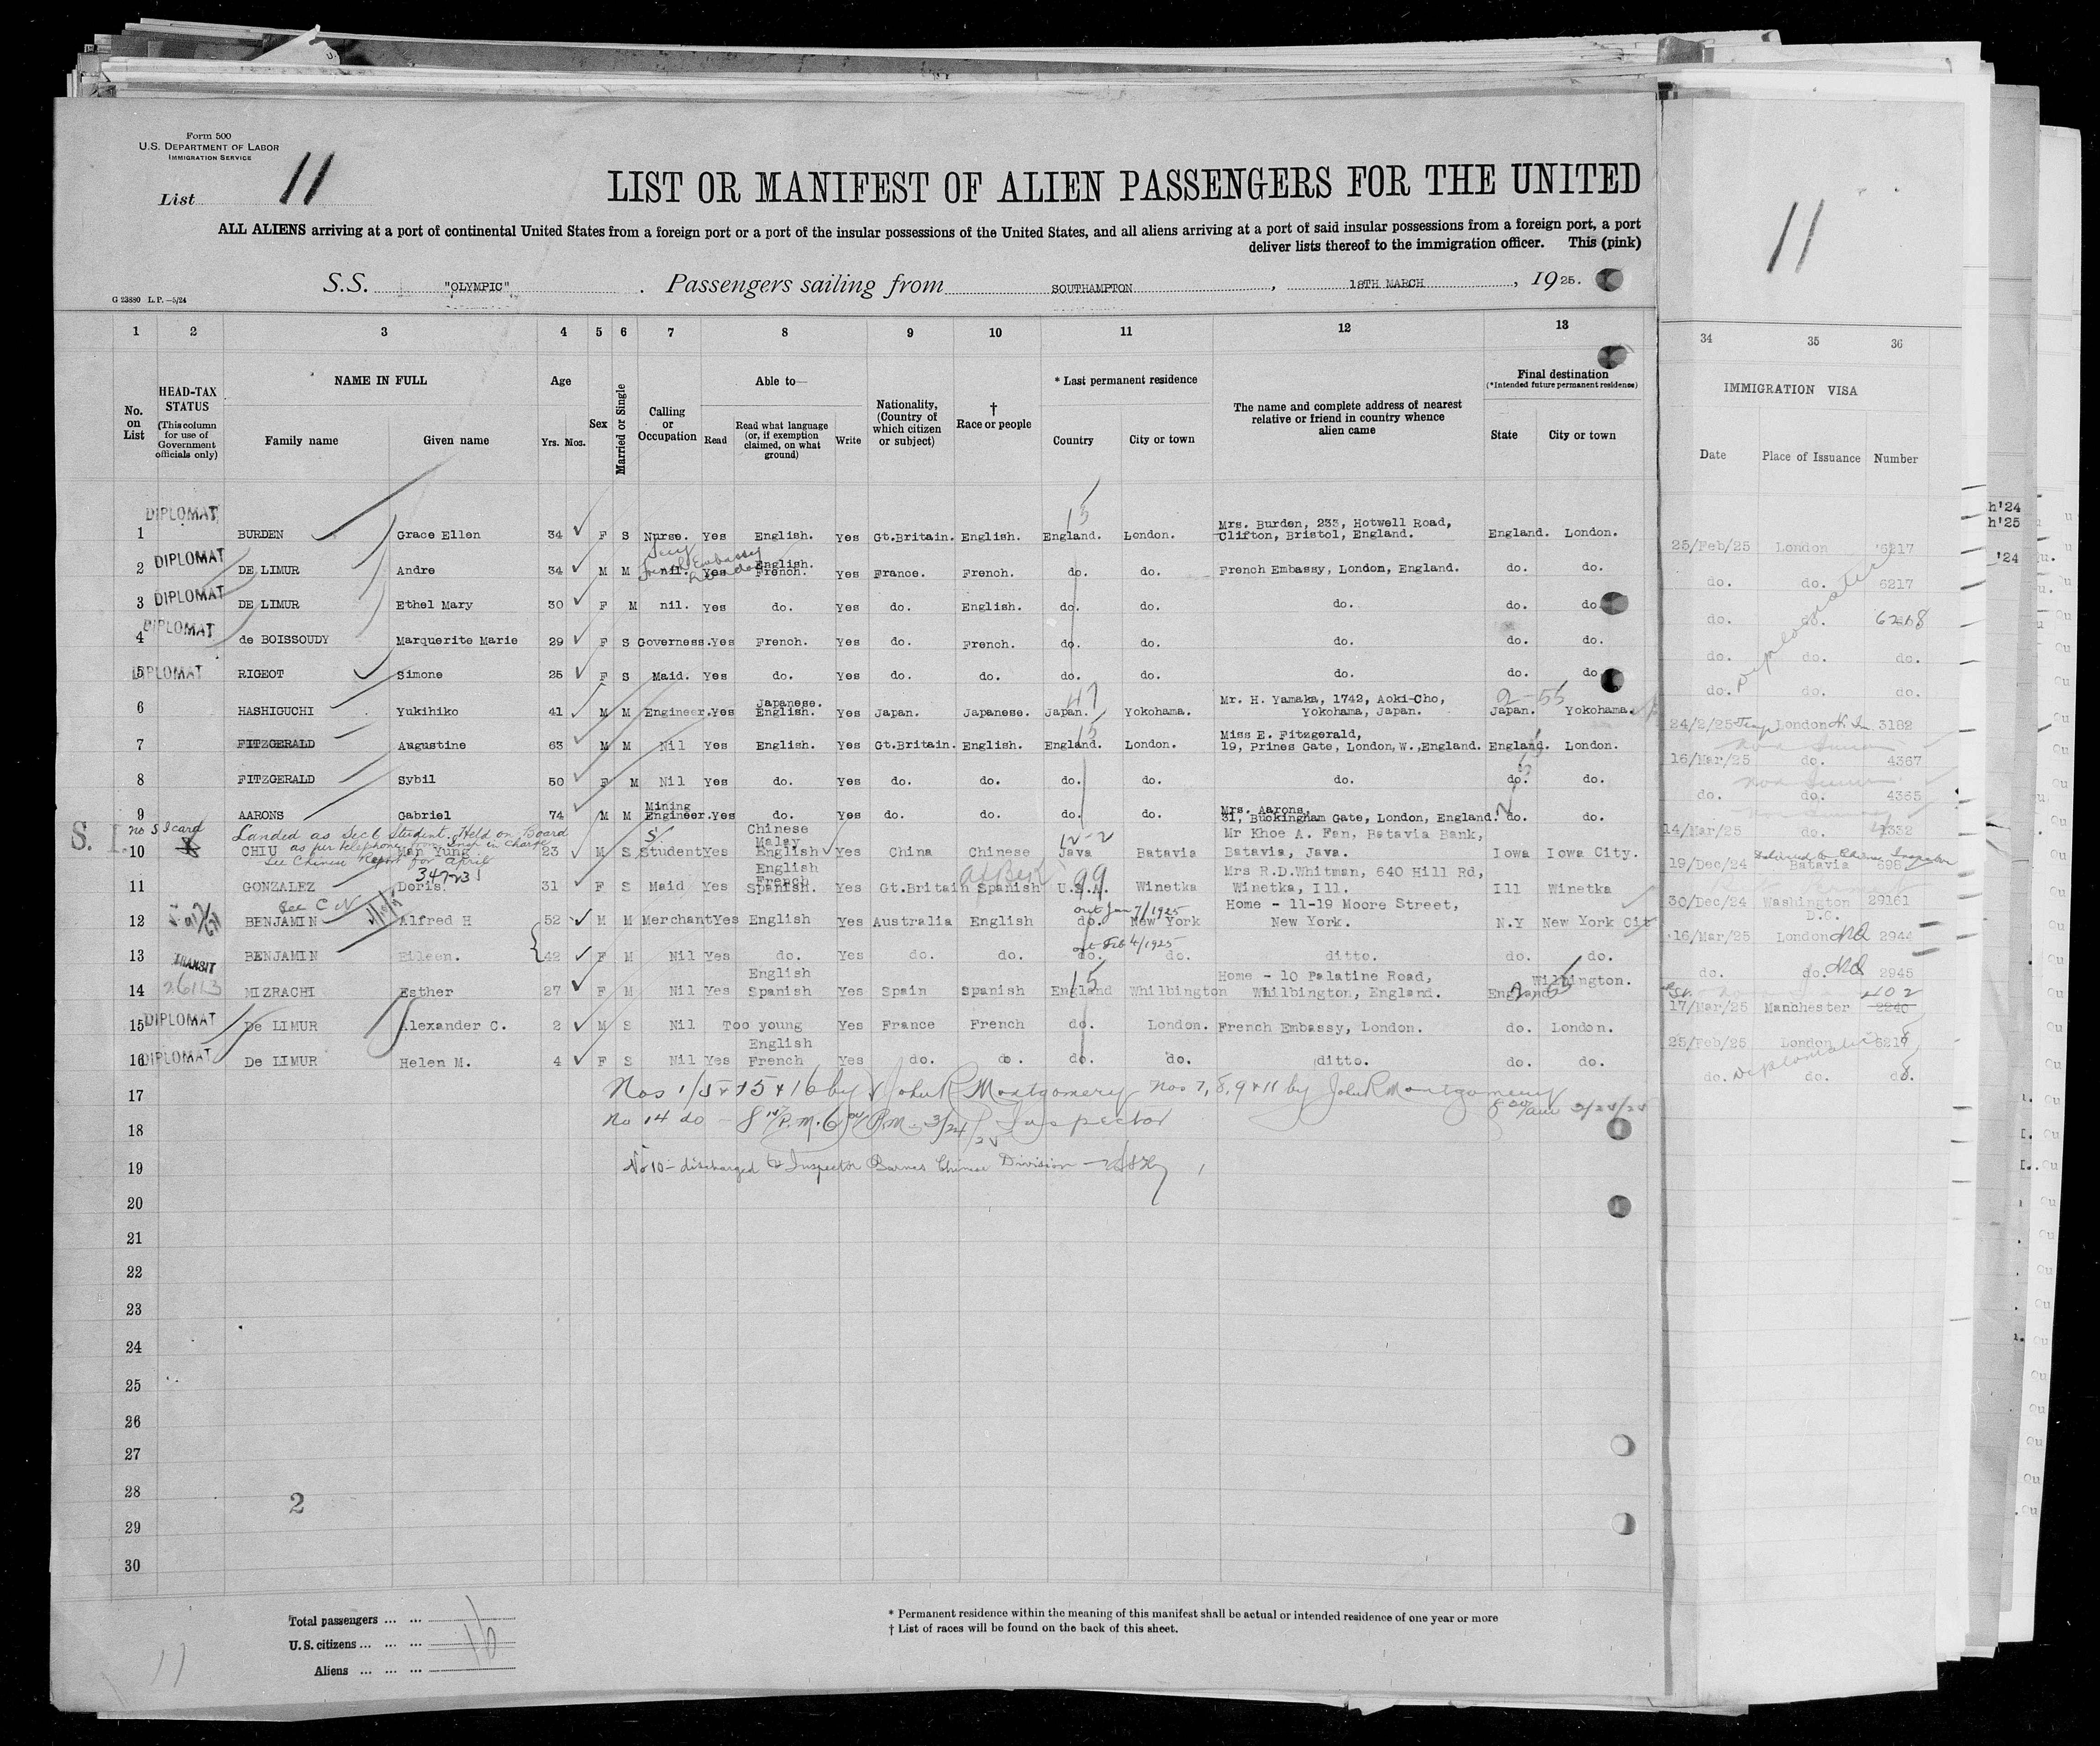 Form 500
U.S. DEPARTMENT OF LABOR
IMMIGRATION SERVICE
List 11
LIST OR MANIFEST OF ALIEN PASSENGERS FOR THE UNITED
ALL ALIENS arriving at a port of continental United States from a foreign port or a port of the insular possessions of the United States, and all aliens arriving at a port of said insular possessions from a foreign port, a port
deliver lists thereof to the immigration officer. This (pink)
11
G 23880 L.P.—5/24
S.S. "OLYMPIC" . Passengers sailing from SOUTHAMPTON, 18TH MARCH, 1925.
1 2 3 4 5 6 7 8 9 10 11 12 13 34 35 36
No. on List
HEAD-TAX STATUS (This column for use of Government officials only)
NAME IN FULL
Family name Given name
Age Yrs. Mos.
Sex
Married or Single
Calling or Occupation
Able to—
Read Read what language (or, if exemption claimed, on what ground) Write
Nationality, (Country of which citizen or subject)
† Race or people
* Last permanent residence
Country City or town
The name and complete address of nearest relative or friend in country whence alien came
Final destination (*Intended future permanent residence)
State City or town
IMMIGRATION VISA
Date Place of Issuance Number
DIPLOMAT 15
1 BURDEN Grace Ellen 34 F S Nurse. Yes English. Yes Gt.Britain. English. England. London. Mrs. Burden, 233, Hotwell Road, Clifton, Bristol, England. England. London. 25/Feb/25 London 6217
Secy French Embassy London
2 DIPLOMAT DE LIMUR Andre 34 M M nil. Yes English. French. Yes France. French. do. do. French Embassy, London, England. do. do. do. do. 6217
3 DIPLOMAT DE LIMUR Ethel Mary 30 F M nil. Yes do. Yes do. English. do. do. do. do. do. do. do. 6218
4 DIPLOMAT de BOISSOUDY Marquerite Marie 29 F S Governess. Yes French. Yes do. French. do. do. do. do. do. do. do. do.
5 DIPLOMAT RIGEOT Simone 25 F S Maid. Yes do. Yes do. do. do. do. do. do. do. do. do. do.
6 HASHIGUCHI Yukihiko 41 M M Engineer. Yes Japanese. English. Yes Japan. Japanese. Japan. Yokohama. Mr. H. Yamaka, 1742, Aoki-Cho, Yokohama, Japan. Japan. Yokohama. 24/2/25 London 3182
7 FITZGERALD Augustine 63 M M Nil Yes English. Yes Gt.Britain. English. England. London. Miss E. Fitzgerald, 19, Prines Gate, London,W.,England. England. London. 16/Mar/25 do. 4367
8 FITZGERALD Sybil 50 F M Nil Yes do. Yes do. do. do. do. do. do. do. do. do. 4365
9 AARONS Gabriel 74 M M Mining Engineer. Yes do. Yes do. do. do. do. Mrs. Aarons, 31, Buckingham Gate, London, England. do. do. 14/Mar/25 do.
S. I. no S I card
Landed as Sec 6 Student. Held on Board
as per telephone from Insp in charge
See Chinese Report for April
10 CHIU Yung 23 M S Student Yes Chinese Malay English Yes China Chinese Java Batavia Mr Khoe A. Fan, Batavia Bank, Batavia, Java. Iowa Iowa City. 19/Dec/24 Batavia 698
11 GONZALEZ Doris. 31 F S Maid Yes English French Spanish. Yes Gt.Britain Spanish U.S.A. Winetka Mrs R.D.Whitman, 640 Hill Rd, Winetka, Ill. Ill Winetka 30/Dec/24 Washington D.C. 29161
See C N
out Jan 7/1925
12 BENJAMIN Alfred H 52 M M Merchant Yes English Yes Australia English do. New York Home - 11-19 Moore Street, New York. N.Y New York Cit 16/Mar/25 London 2944
out Feb 4/1925
13 BENJAMIN Eileen. 42 F M Nil Yes do. Yes do. do. do. do. ditto. do. do. do. do. 2945
TRANSIT
14 MIZRACHI Esther 27 F M Nil Yes English Spanish Yes Spain Spanish England Whilbington Home - 10 Palatine Road, Whilbington, England. England Wilbington. 17/Mar/25 Manchester 2240
15 DIPLOMAT De LIMUR Alexander C. 2 M S Nil Too young Yes France French do. London. French Embassy, London. do. London. 25/Feb/25 London 6217
16 DIPLOMAT De LIMUR Helen M. 4 F S Nil Yes English French Yes do. do. do. do. ditto. do. do. do. do. do.
17 Nos 1/5 & 15 & 16 by John R Montgomery Nos 7, 8, 9 & 11 by John R Montgomery
18 No 14 do Inspector
19 No 10 - discharged to Inspector Barnes Chinese Division
20
21
22
23
24
25
26
27
28
29
30
2
Total passengers ... ...
U.S. citizens ... ... ... 16
Aliens ... ... ...
* Permanent residence within the meaning of this manifest shall be actual or intended residence of one year or more
† List of races will be found on the back of this sheet.
11